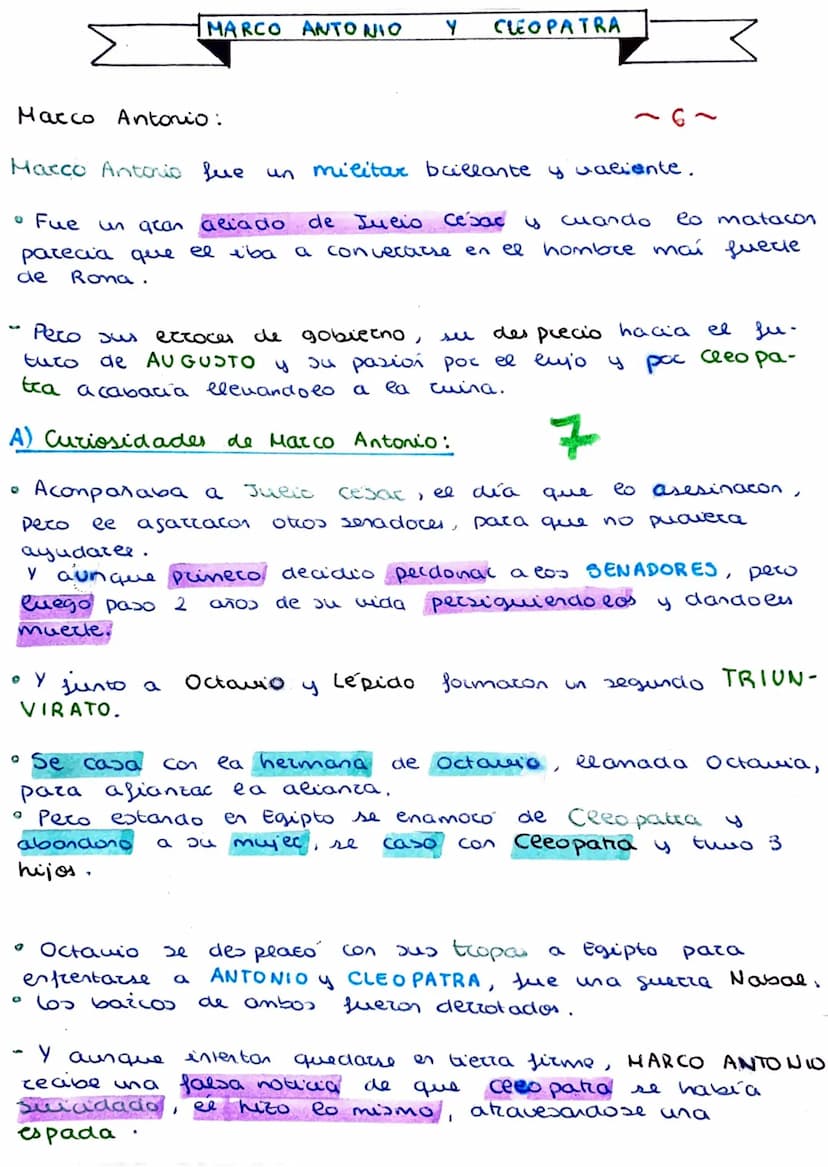 MARCO ANTONIO Y CLEOPATRA
Marco Antonio:
~ 6 ~
Marco Antonio fue un militar brillante y valiente.
• Fue un gran aliado de Julio César y cuando lo mataron
parecia que el iba a convertirse en el hombre maś fuerte
de Roma.
- Pero sus errores de gobierno, su desprecio hacia el fu-
turo de AUGUSTO y su pasioń por el lujo y por Cleopa-
tra acabaria llevandolo a la ruina.
A) Curiosidades de Marco Antonio:
7
• Aconpañaba a Julio César, el día que lo asesinaron,
pero le agarraron otros senadores, para que no pudiera
ayudarle.
Y aunque primero decidio perdonar a los SENADORES, pero
luego paso 2 años de su vida persiguiendolos y dandoles
muerte.
• Y junto a Octavio y Lépido formaron un segundo TRIUN-
VIRATO.
• Se casa con la hermana de Octavio, llamada Octavia,
para afianzar la alianza.
• Pero estando en Egipto se enamoró de Cleopatra y
abandono a su mujer, se caso con Cleopatra y tuvo 3
hijos.
• Octavio se desplazó con sus tropas a Egipto para
enfrentarse a ANTONIO y CLEOPATRA, fue una guerra Nabal.
• Los barcos de ambos fueron derrotados.
- Y aunque intentan quedarse en tierra firme, MARCO ANTONIO
recibe una falsa noticia de que Cleopatra se había
suicidado, él hizo lo mismo, atravesandose una
espada.